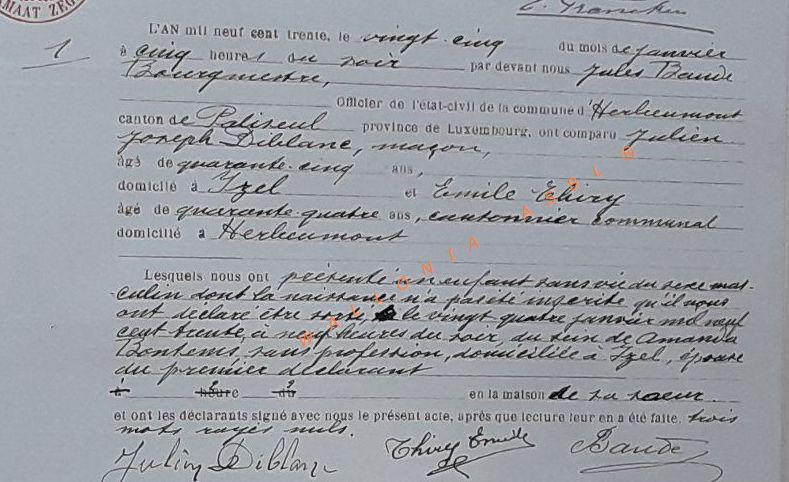 MAAT ZEG
1
L'AN mil neuf cent trente, le vingt-cinq du mois de janvier
à cinq heures du soir par devant nous Jules Baude
Bourgmestre,
Officier de l'état-civil de la commune d'Herbeumont
canton de Paliseul province de Luxembourg, ont comparu Julien
Joseph Diblanc, maçon,
âgé de quarante-cinq ans,
domicilié à Izel et Emile Thiry
âgé de quarante-quatre ans, cantonnier communal
domicilié à Herbeumont
Lesquels nous ont présenté un enfant sans vie du sexe mas-
culin dont la naissance n'a pas été inscrite qu'il nous
ont déclaré être sorti, le vingt-quatre janvier mil neuf
cent trente, à neuf heures du soir, du sein de Amanda
Bontems, sans profession, domiciliée à Izel, épouse
du premier déclarant
à heure du en la maison de sa soeur
et ont les déclarants signé avec nous le présent acte, après que lecture leur en a été faite. trois
mots rayés nuls.
Julien Diblanc Thiry Emile Baude
WALLONIA ASBL